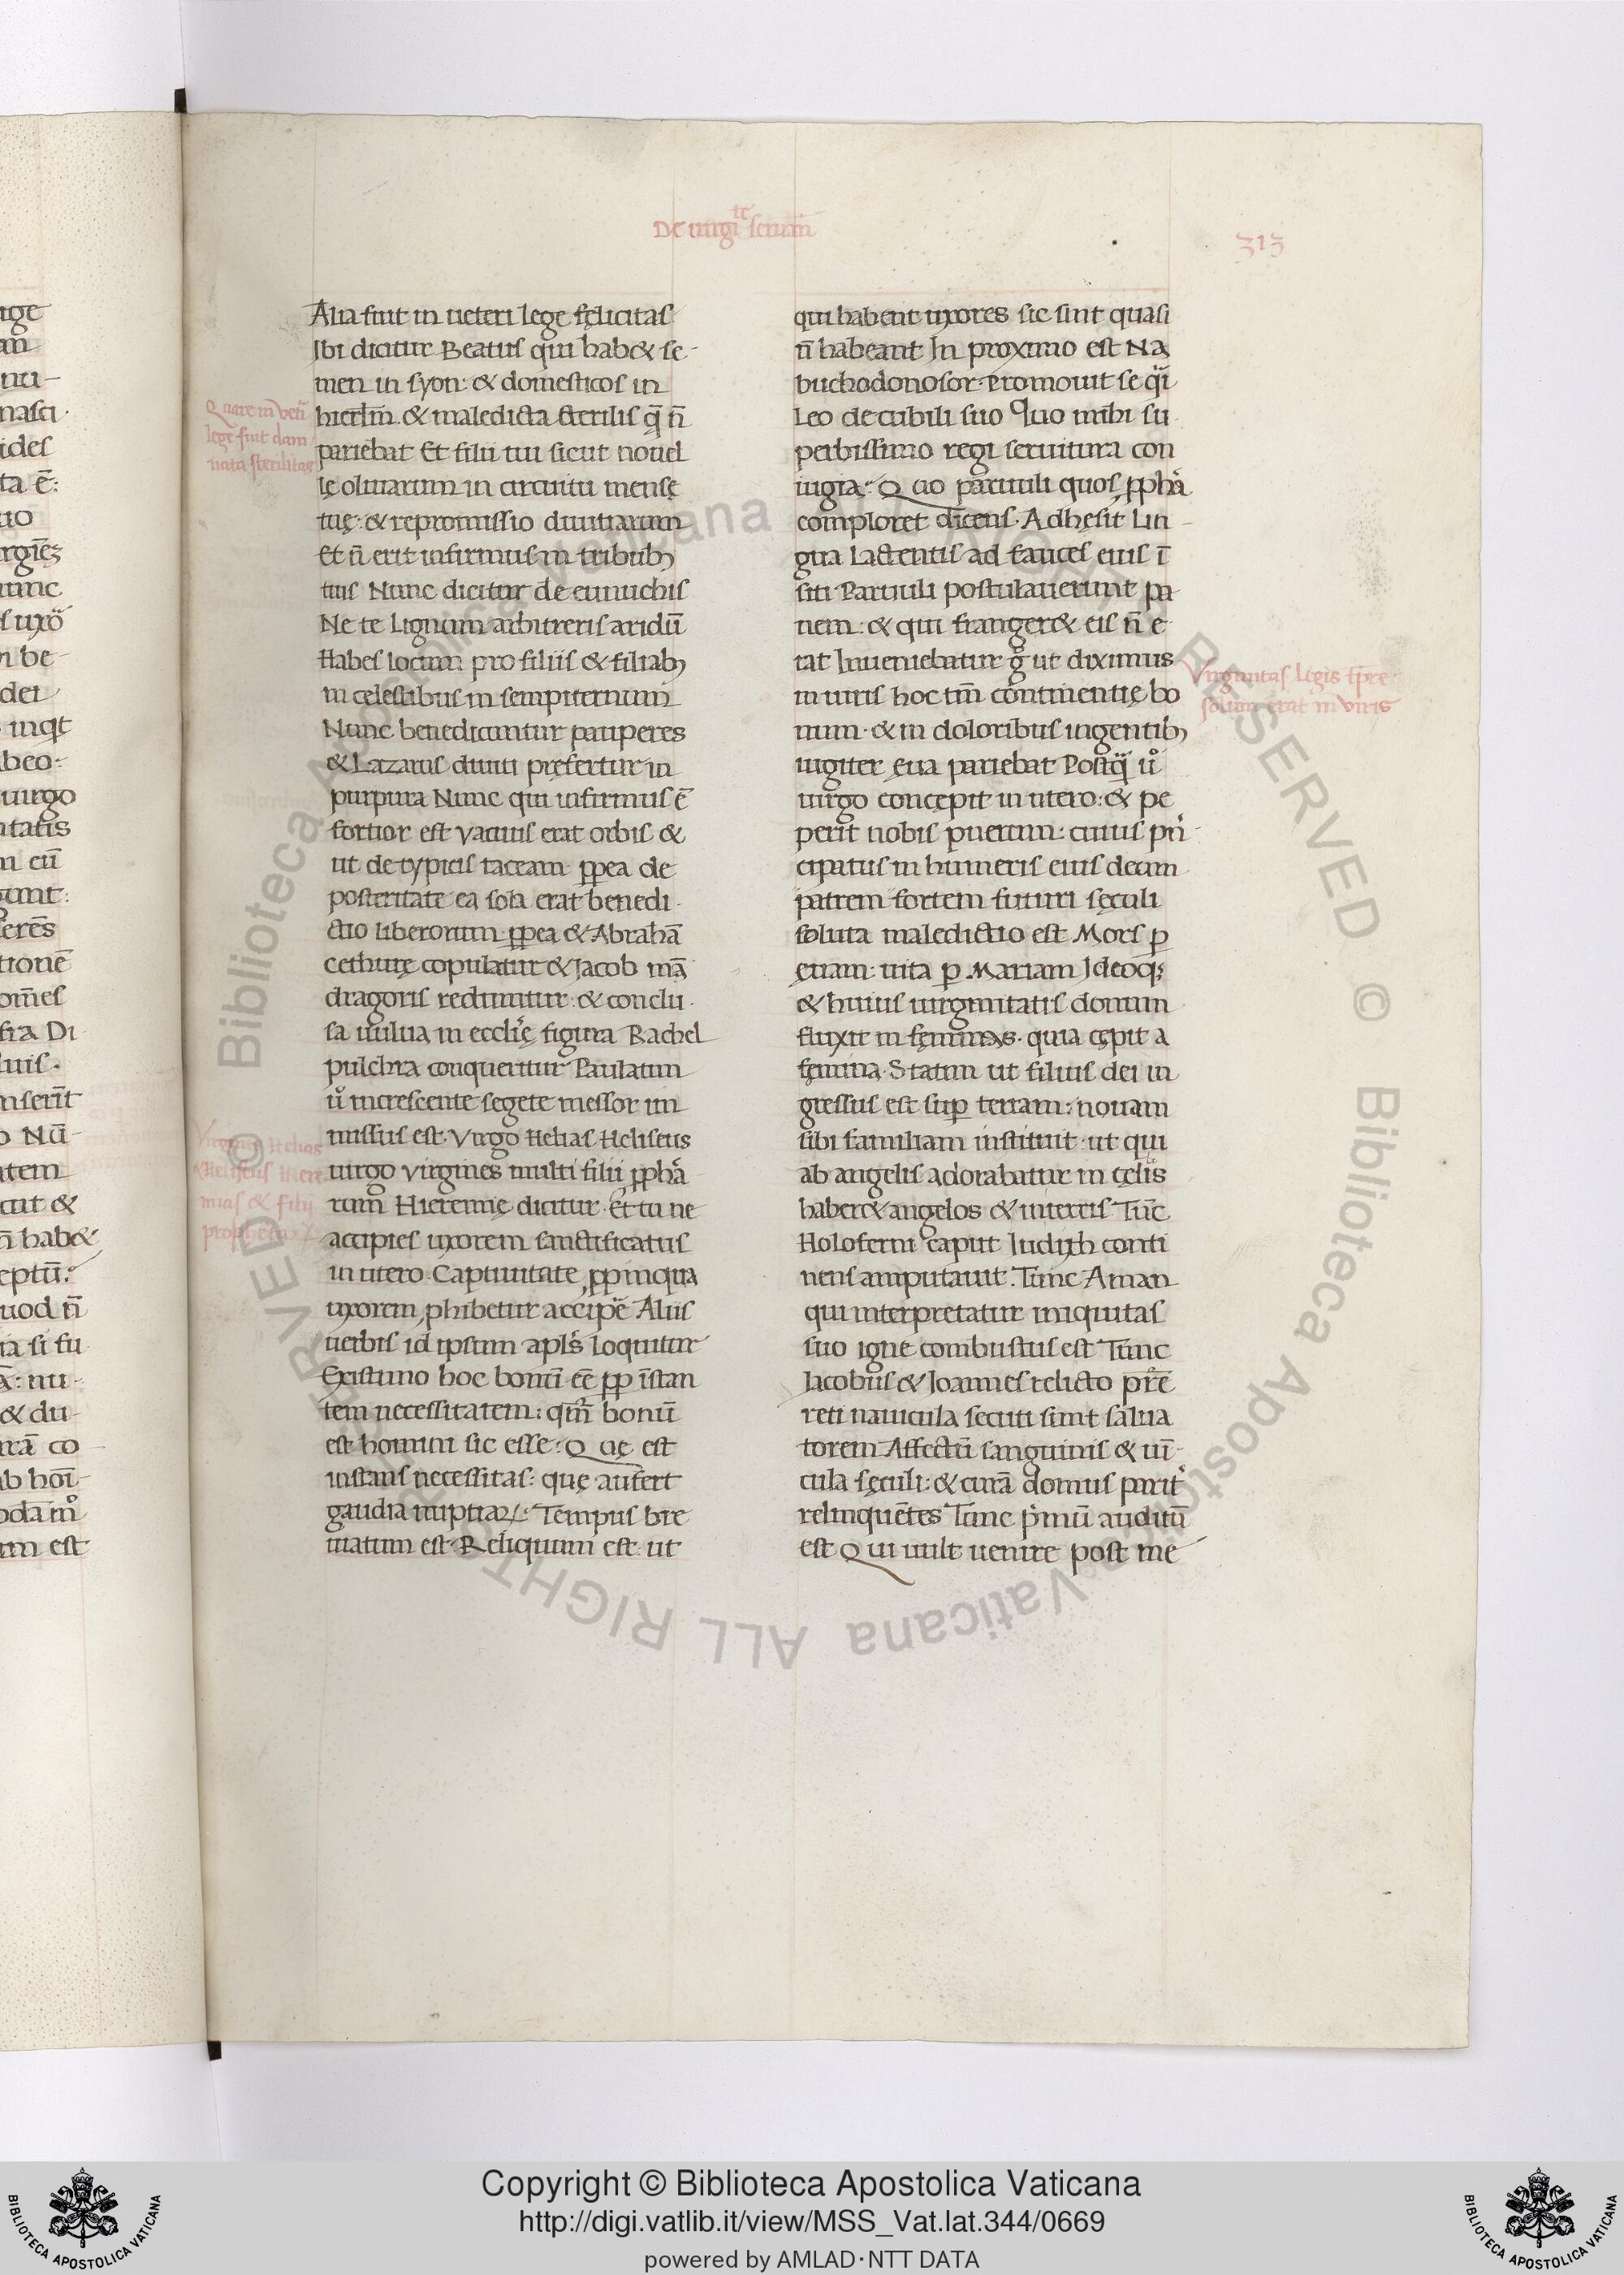 De uirgi^te seruan̄
313
Alia fuit in ueteri lege fęlicitas
Ibi dicitur Beatus qui hab& se-
men in syon: & domesticos in
hierlm̄. & maledicta sterilis q̄ n̄
pariebat Et filii tui sicut nouel
lę oliuarum in circuitu mensę
tuę: & repromissio diuitiarum
Et n̄ erit infirmus in tribubꝫ
tuis Nunc dicitur de eunuchis
Ne te lignum arbitreris aridū
Habes locum pro filiis & filiabꝫ
in cęlestibus in sempiternum
Nunc benedicuntur pauperes
& Lazarus diuiti pręfertur in
purpura Nunc qui infirmus ē
fortior est vacuus erat orbis &
ut de typicis taceam ꝓpea de
posteritate ea sola erat benedi-
ctio liberorum ꝓpea & Abrahā
cethurę copulatur & Jacob mā
dragoris redimitur: & conclu-
sa uuluā in eccl̄ię figura Rachel
pulchra conqueritur Paulatim
ů increscente segete messor im
missus est. Virgo Helias Heliseus
uirgo virgines multi filii ꝓpha̾
rum̄ Hieremię dicitur. Et tu ne
accipies uxorem sanctificatus
in utero. Captiuitate ꝓpinqua
uxorem ꝓhibetur accipe̾ Aliis
uerbis id ipsum apl̄s loquitur
Existimo hoc bonū eē ꝓp īstan
tem necessitatem: qm̄ bonū
est homini sic esse. Quę est
instans necessitas: quę aufert
gaudia nuptiaꝝ: Tempus bre
uiatum est. Reliquum est ut
Quare in veti
lege fuit dam
nata sterilitas
Virgines Helias
& Heliseus Hiere
mias & filii
prophetaꝝ
qui habent uxores sic sint quasi
n̄ habeant In proximo est Na
buchodonosor. Promouit se q̾i
Leo de cubili suo Quo mihi su
perbissimo regi seruitura con
iugia: Quo paruuli quos ꝓpha̾
comploret dicens. Adhęsit lin-
gua lactentis ad fauces eius ī
siti Paruuli postulauerunt pa
nem: & qui franger& eis n̄ e
rat Inueniebatur g̊ ut diximus
in uiris hoc tm̄ continentię bo
num. & in doloribus ingentibꝫ
iugiter ęua pariebat Postq̄ ů
uirgo concępit in utero: & pe
perit nobis puerum: cuius pri̾
cipatus in humeris eius deum
patrem fortem futuri sęculi
soluta maledictio est Mors ꝑ
ęuam: uita ꝑ Mariam Ideoqꝫ
& huius uirginitatis donum
fluxit in fęminas. quia cępit a
fęmina. Statim ut filius dei in
gressus est suꝑ terram: nouam
sibi familiam instituit: ut qui
ab angelis adorabatur in cęlis
haber& angelos & in terris Tūc
Holoferni caput Judyth conti
nens amputauit. Tunc Aman
qui interpretatur iniquitas
suo igne combustus est Tunc
Jacobus & Joannes relicto pr̄e
reti nauicula secuti sunt salua
torem Affectū sanguinis & ui̅-
cula sęculi: & curā domus parit̾
relinquētes Tunc p̾mū auditū
est Qui uult uenire post me
Virginitas legis tp̄re
solum erat in viris
ige
an̄
nu-
nasci.
ides
ta ē:
uo
unc
s uxo̾
n be-
dei
inqt
beo:
uirgo
itatis
n eū
gunt:
feres̄
tionē
om̄es
fra Di
luis.
nserit̄
o Nū-
atem
cut &
n̄ hab&
eptū.
uod n̄
ia si fu
nu-
& du-
rā co
ab hoi̅-
odam̊
um est
Copyright © Biblioteca Apostolica Vaticana
http://digi.vatlib.it/view/MSS_Vat.lat.344/0669
powered by AMLAD·NTT DATA
BIBLIOTECA APOSTOLICA VATICANA
BIBLIOTECA APOSTOLICA VATICANA
© Biblioteca Apostolica Vaticana ALL RIGHTS RESERVED © Biblioteca Apostolica Vaticana ALL RIGHTS RESERVED